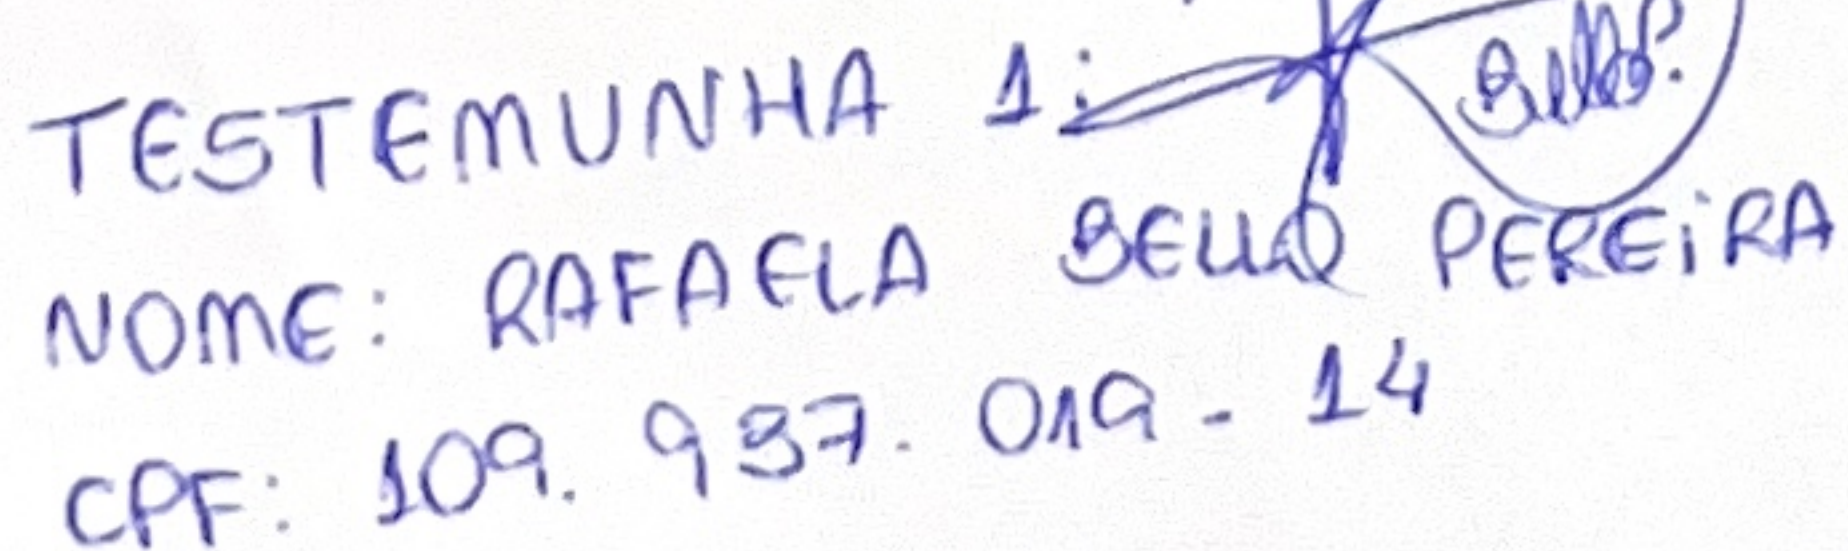 TESTEMUNHA 1:
NOME: RAFAELA BELLO PEREIRA
CPF: 109.997.019-14